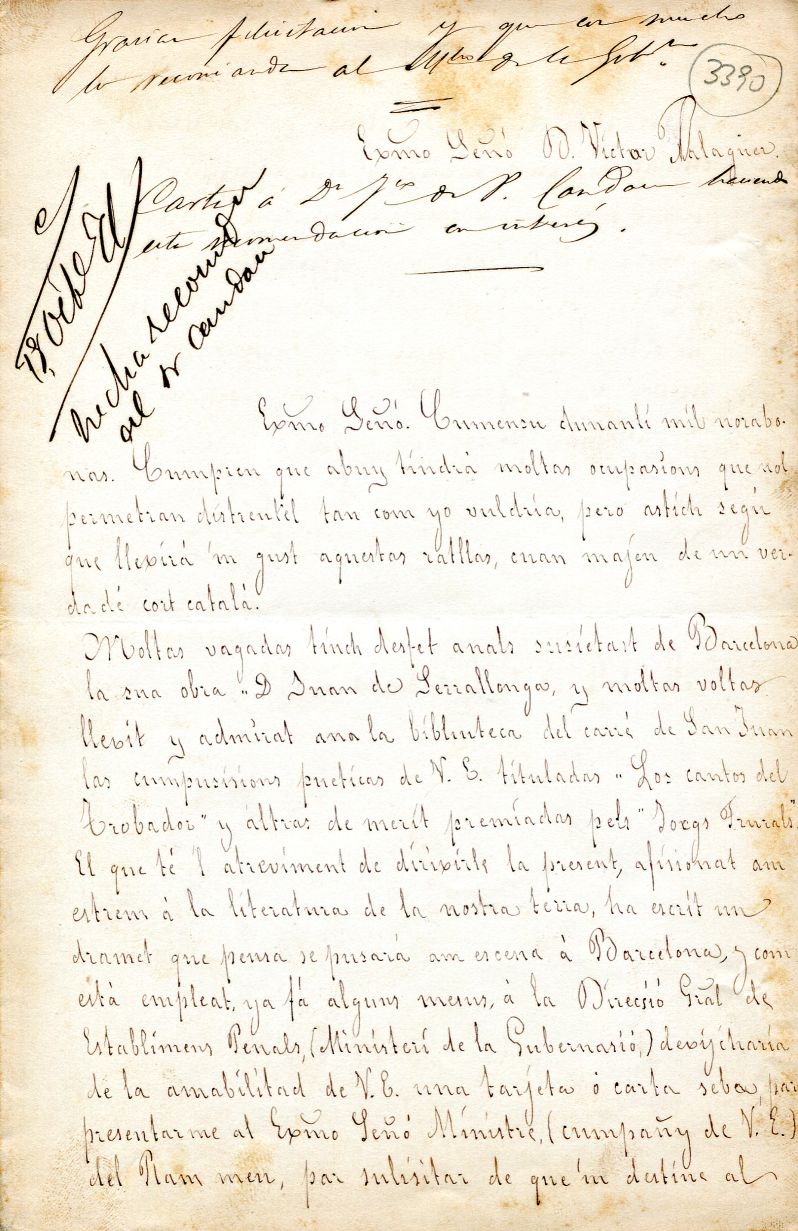 Gracias felicitacion y que con mucho
lo recomienda al Mtro de la Gobn
3390
Exmo Señó D. Victor Balaguer.
Carta á Dn Fco de P. Candau haciendo
esta recomendacion con interés.
hecha recomn
al Sr Candau
Exmo Señó. Cumensu dunantli mil norabo-
nas. Cumpren que abuy tindrá moltas ocupasions que nol
permetran distreurel tan com yo vuldria, pero astich segú
que llexirá 'm gust aquestas ratllas, cuan majen de un ver-
dadé cort catalá.
Moltas vagadas tinch desfet anals susietast de Barcelona
la sua obra "D Juan de Serrallonga, y moltas voltas
llexit y admirat ana la biblioteca del carré de San Juan
las cumpusisions pueticas de V. E. tituladas "Los cantos del
Trobador" y altras de merit premiadas pels "Jocgs Frurals".
El que té 'l atreviment de dirixirle la present, afisionat am
estrem á la literatura de la nostra terra, ha escrit un
dramet que pensa se pusará am escena á Barcelona, y com
está empleat, ya fá alguns mesus, á la Direcsió Gral de
Establimens Penals, (Ministeri de la Gubernasió,) dexijcharia
de la amabilitad de V. E. una tarjeta ó carta seba, par
presentarme al Exmo Señó Ministre, (cumpañy de V. E.)
del Ram meu, par sulisitar de que 'm destine al